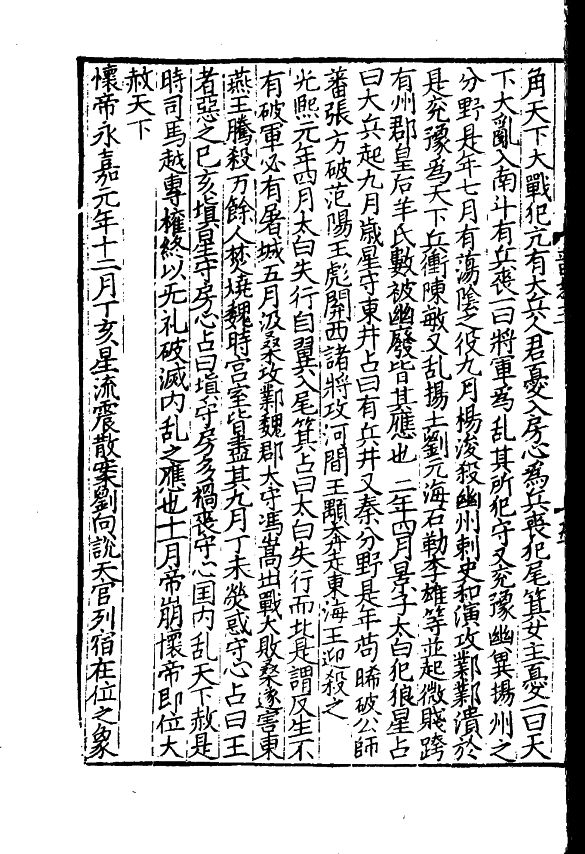 角天下大戰犯亢有大兵人君憂入房心爲兵喪犯尾箕女主憂一曰天
下大亂入南斗有兵喪一曰將軍爲乱其所犯守又兖豫幽異揚州之
分野是年七月有蕩陰之役九月楊浚殺幽州刺史和演攻鄴鄴潰於
是兖豫爲天下兵衝陳敏又乱揚土劉元海石勒李雄等並起微賤跨
有州郡皇后羊氏數被幽廢皆其應也 二年四月景子太白犯狼星占
曰大兵起九月歳星守東井占曰有兵井又秦分野是年苟晞破公師
蕃張方破范陽王虓關西諸將攻河間王顒奔走東海王迎殺之
光熙元年四月太白失行自翼入尾箕占曰太白失行而北是謂反生不
有破軍必有屠城五月汲桑攻鄴魏郡太守馮嵩出戰大敗桑遂害東
燕王騰殺万餘人焚燒魏時宫室皆盡其九月丁未熒惑守心占曰王
者惡之己亥塡星守房心占曰塡守房多禍喪守心国内乱天下赦是
時司馬越專權終以无礼破滅内乱之應也十一月帝崩懷帝即位大
赦天下
懷帝永嘉元年十二月丁亥星流震散案劉向說天官列宿在位之象